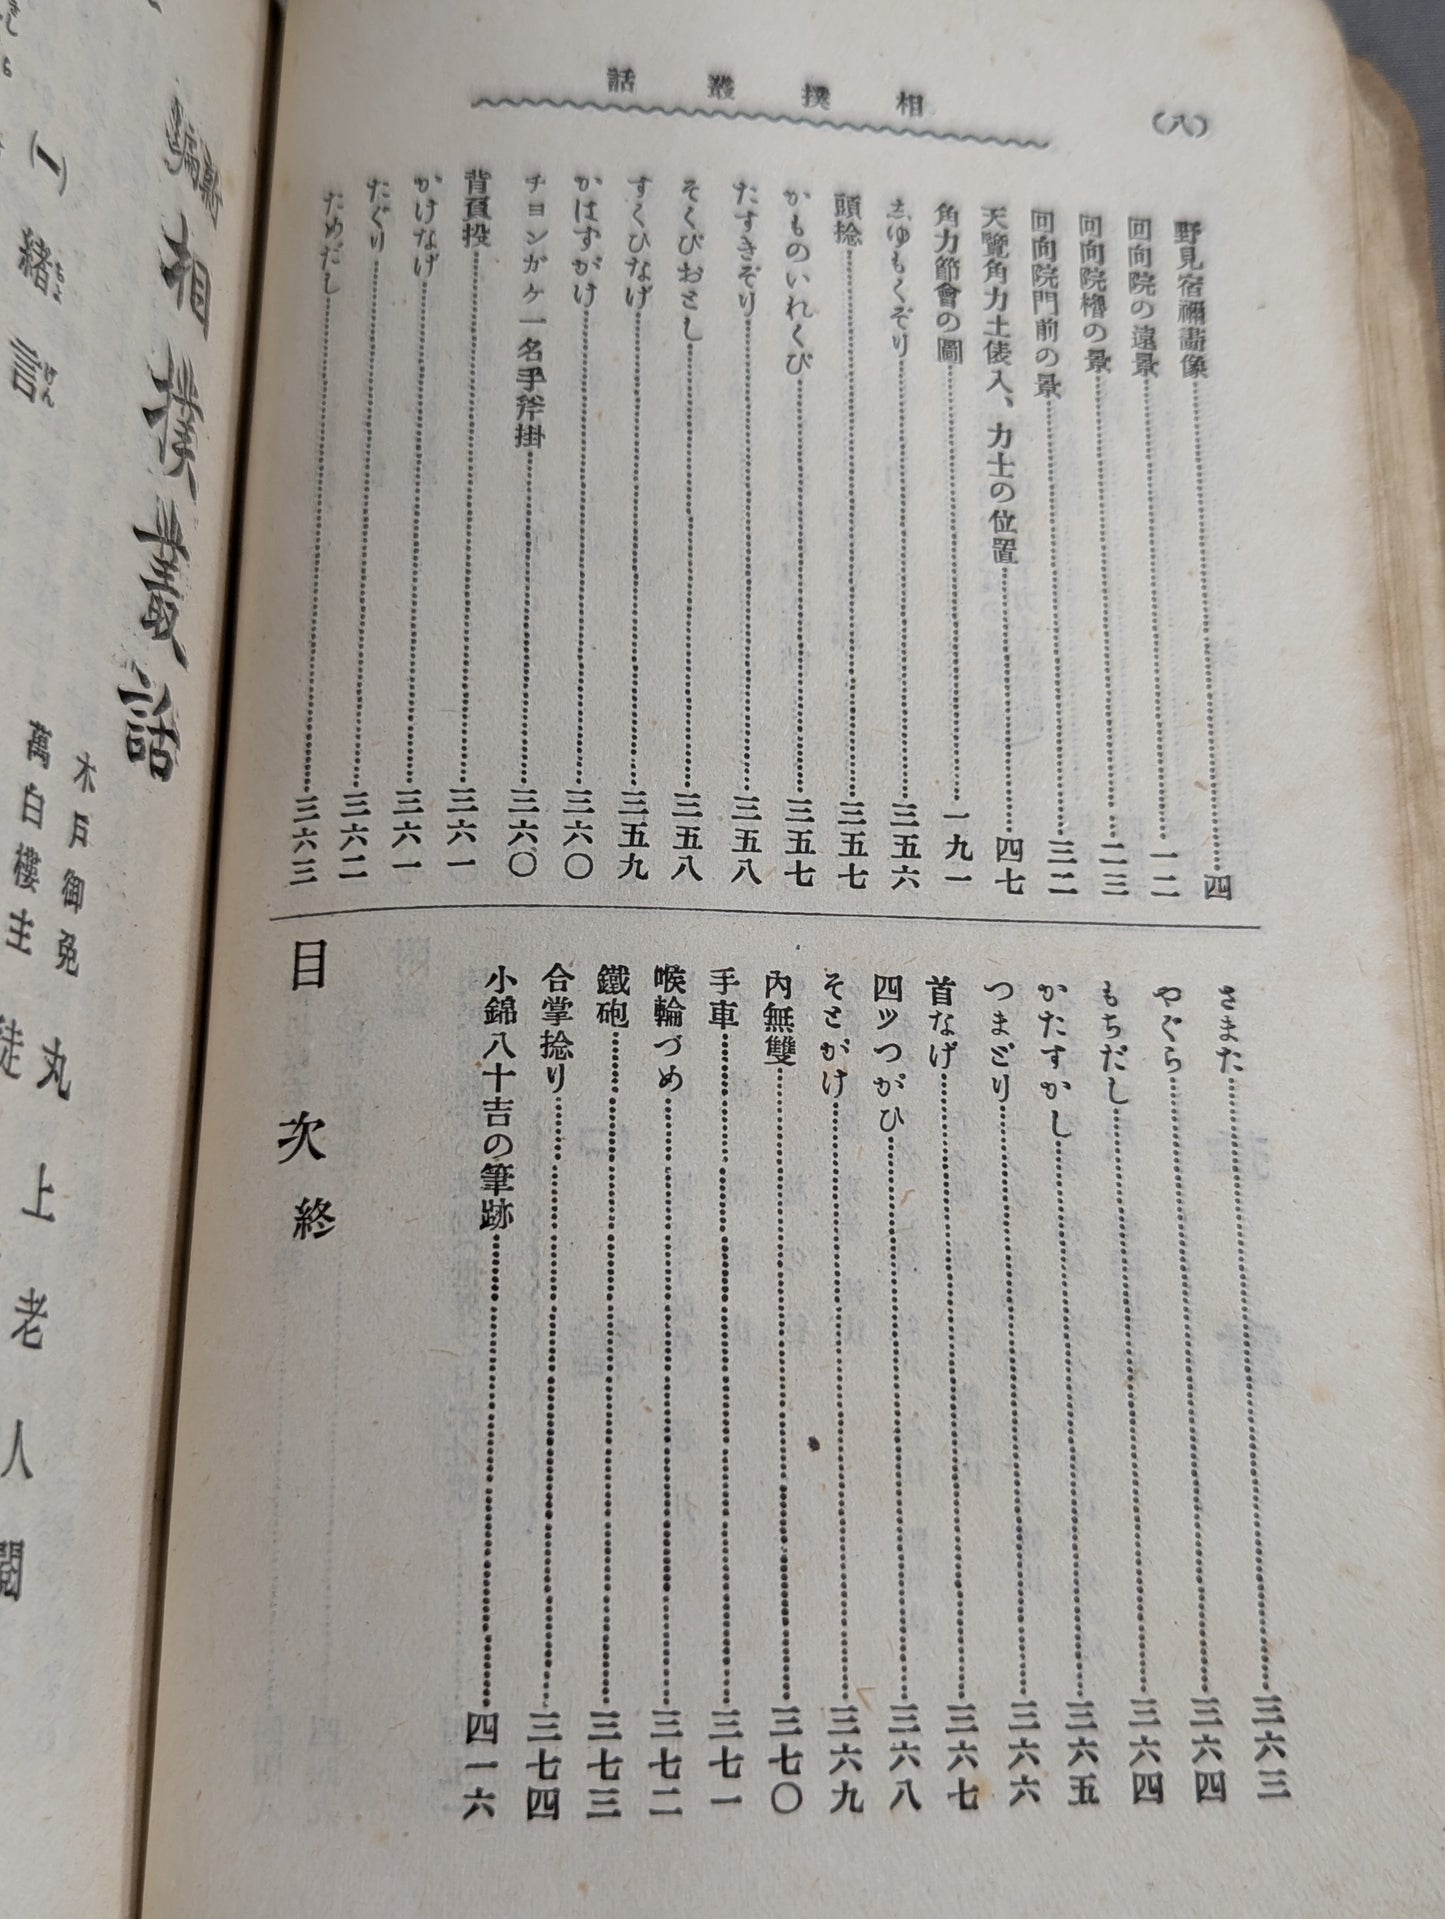 (八)
相撲叢話
野見宿禰畫像……四
回向院の遠景……一二
回向院櫓の景……二三
回向院門前の景……三二
天覽角力土俵入、力士の位置……四七
角力節會の圖……一九一
志ゆもくぞり……三五六
頭捻……三五七
かものいれくび……三五七
たすきぞり……三五八
そくびおとし……三五八
すくひなげ……三五九
かはすがけ……三六〇
チョンガケ一名手斧掛……三六〇
背負投……三六一
かけなげ……三六一
たぐり……三六二
ためだし……三六三
さまた……三六三
やぐら……三六四
もちだし……三六四
かたすかし……三六五
つまどり……三六六
首なげ……三六七
四ツつがひ……三六八
そとがけ……三六九
內無雙……三七〇
手車……三七一
喉輪づめ……三七二
鐵砲……三七三
合掌捻り……三七四
小錦八十吉の筆跡……四一六
目次終
相撲叢話
木戸御免 丸上老人閲
萬白樓主 徒
(一)緒言